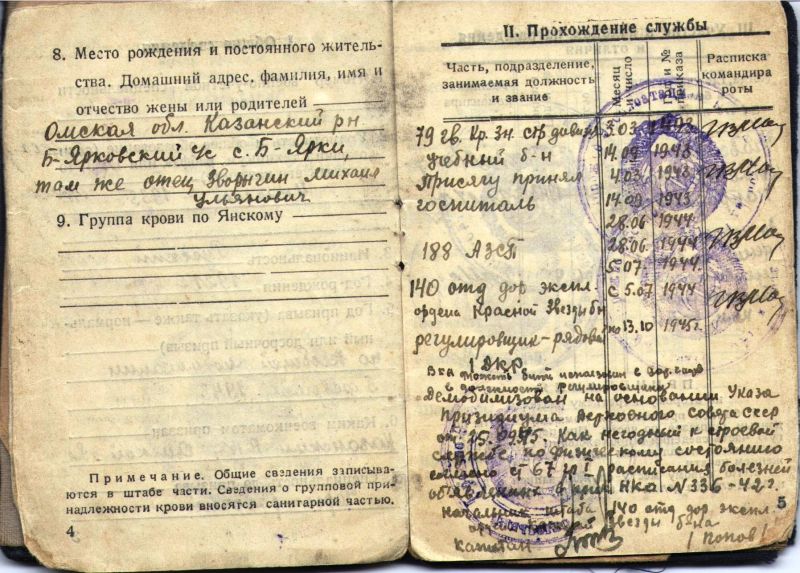 8. Место рождения и постоянного житель-
ства. Домашний адрес, фамилия, имя и
отчество жены или родителей
Омская обл. Казанский рн
Б-Ярковский с/с с. Б-Ярки,
там же отец Зворыгин Михаил
Ульянович
9. Группа крови по Янскому
Примечание. Общие сведения записыва-
ются в штабе части. Сведения о групповой при-
надлежности крови вносятся санитарной частью.
4
II. Прохождение службы
Часть, подразделение,
занимаемая должность
и звание
Месяц
и число
Год и №
приказа
Расписка
командира
роты
79 гв. Кр. Зн. стр дивизия 5.03 1943
Учебный б-н 14.09 1943
Присягу принял 4.03 1943
госпиталь 14.09 1943
28.06 1944
188 АЗСП 28.06. 1944
5.07. 1944.
140 отд дор экспл. с 5.07 1944
ордена Красной Звезды бн
регулировщик-рядовой по 13.10 1945г.
1 ДКР
Вга может быть использован в
в должности регулировщика
Демобилизован на основании Указа
Призидиума Верховного совета СССР
от 25.09.45. Как негодный к строевой
службе по физическому состоянию
согласно ст 67 гр I расписания болезней
объявленных в прик НКО N 336-42 г.
начальник штаба 140 отд дор экспл.
Звезды б-на
капитан / Попов /
5